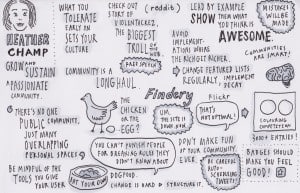 HEATHER
CHAMP
WHAT YOU
TOLERATE
EARLY ON
SETS YOUR
CULTURE
CHECK OUT
STORY OF
VIOLENTACREZ,
THE
BIGGEST
TROLL
(reddit)
LEAD BY EXAMPLE
SHOW THEM WHAT
YOU THINK IS
AWESOME
MISTAKES
WILL BE
MADE
FREE SPEECH
AVOID
IMPLEMENT-
ATIONS WHERE
THE RICH GET RICHER.
CHANGE FEATURED LISTS
REGULARLY,
IMPLEMENT
DECAY
COMMUNITIES
ARE SMART!
GROW AND
SUSTAIN
A PASSIONATE
COMMUNITY.
COMMUNITY IS A
LONG HAUL
THERE'S NO ONE
PUBLIC COMMUNITY,
JUST MANY
OVERLAPPING
PERSONAL SPACES
THE
CHICKEN
OR THE
EGG?
Findery
UM, THE
SITE IS
DOWN
Flickr
THAT'S
NOT OPTIMAL!
COLOURING
COMPETITION
5000+ ENTRIES!
YOU CAN'T PUNISH PEOPLE
FOR BREAKING RULES THEY
DIDN'T KNOW ABOUT
DON'T MAKE FUN
OF YOUR COMMUNITY
EVER.
BE MINDFUL OF THE
TOOLS YOU GIVE
YOUR USER
EAT YOUR OWN
DOGFOOD.
CHANGE IS HARD
STRUCTURE IT.
BE CAREFUL
AUTO-
SCHEDULING
TWEETS!
BADGES SHOULD
MAKE YOU FEEL
GOOD!